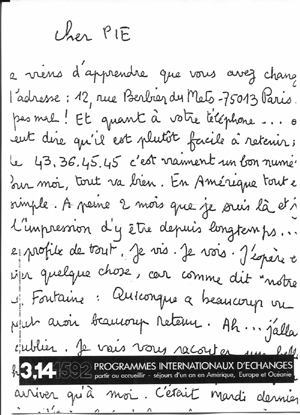 cher PIE
e viens d'apprendre que vous avez chang
l'adresse : 12, rue Berbier du Mets - 75013 Paris.
pas mal ! Et quant à votre téléphone ... o
eut dire qu'il est plutôt facile à retenir ;
le 43.36.45.45 c'est vraiment un bon numé
our moi, tout va bien. En Amérique tout e
simple. A peine 2 mois que je suis là et j
l'impression d'y être depuis longtemps ...
e profite de tout. Je vis. Je vois. J'espère e
quelque chose, car comme dit "notre
Fontaine : Quiconque a beaucoup vu
peut avoir beaucoup retenu. Ah ... j'alla
oublier. Je vais vous raconter
3.14 1592 PROGRAMMES INTERNATIONAUX D'ECHANGES
partir ou accueillir - séjours d'un an en Amérique, Europe et Océanie
arriver qu'à moi. C'était mardi dernier